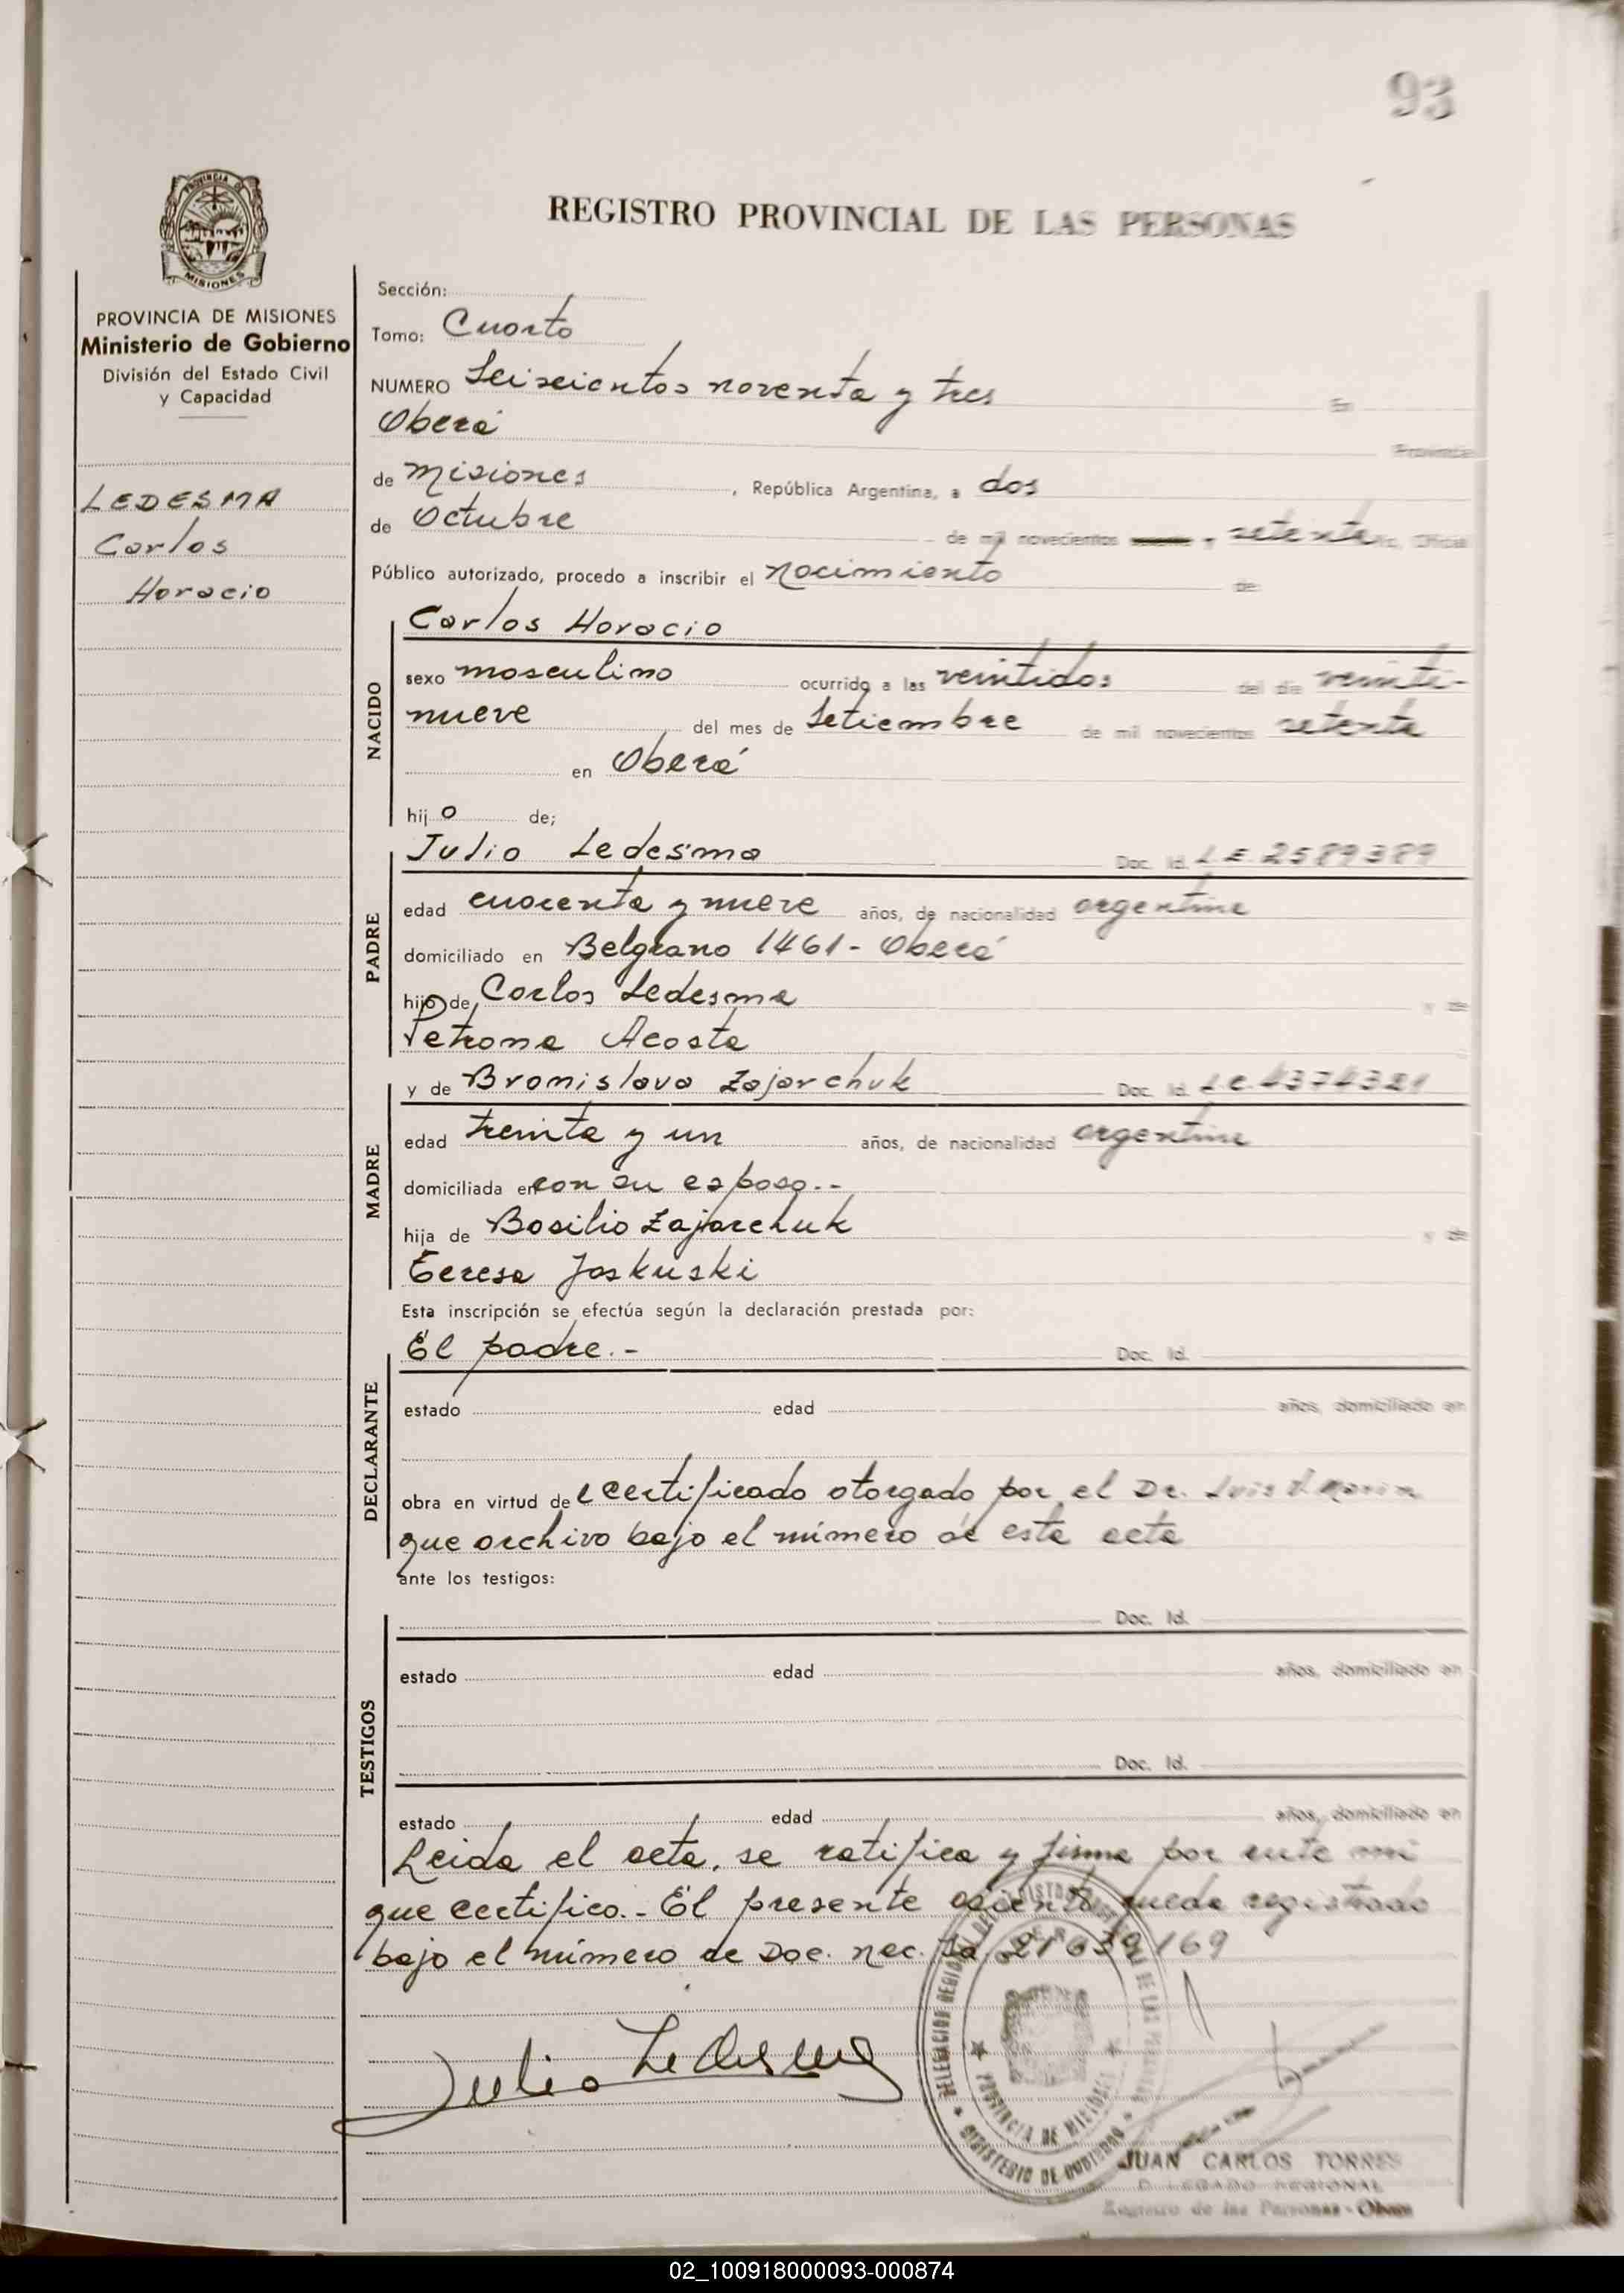 93
PROVINCIA DE
MISIONES
REGISTRO PROVINCIAL DE LAS PERSONAS
PROVINCIA DE MISIONES
Ministerio de Gobierno
División del Estado Civil
y Capacidad
LEDESMA
Carlos
Horacio
Sección:
Tomo: Cuarto
NUMERO Seiscientos noventa y tres En
Oberá Provincia
de Misiones, República Argentina, a dos
de Octubre de mil novecientos y setenta Oficial
Público autorizado, procedo a inscribir el nacimiento de
NACIDO
Carlos Horacio
sexo masculino ocurrido a las veintidos del día veinti-
nueve del mes de Setiembre de mil novecientos setenta
en Oberá
hijo de;
PADRE
Julio Ledesma Doc. Id. L.E. 2589389
edad cuarenta y nueve años, de nacionalidad argentina
domiciliado en Belgrano 1461 - Oberá
hijo de Carlos Ledesma y de
Petrona Acosta
MADRE
y de Bronislava Zajarchuk Doc. Id. L.C. 4374321
edad treinta y un años, de nacionalidad argentina
domiciliada en con su esposo.-
hija de Basilio Zajarchuk y de
Teresa Jaskuski
Esta inscripción se efectúa según la declaración prestada por:
DECLARANTE
El padre.- Doc. Id.
estado edad años, domiciliado en
obra en virtud del certificado otorgado por el Dr. Luis
que archivo bajo el número de esta acta
ante los testigos:
TESTIGOS
Doc. Id.
estado edad años, domiciliado en
Doc. Id.
estado edad años, domiciliado en
Leida el acta, se ratifica y firma por ante mi
que certifico.- El presente asiento queda registrado
bajo el número de Doc. nac. Id. 21639169
Julio Ledesma
PROVINCIA DE MISIONES
MINISTERIO DE GOBIERNO
JUAN CARLOS TORRES
DELEGADO REGIONAL
Registro de las Personas - Oberá
02_100918000093-000874